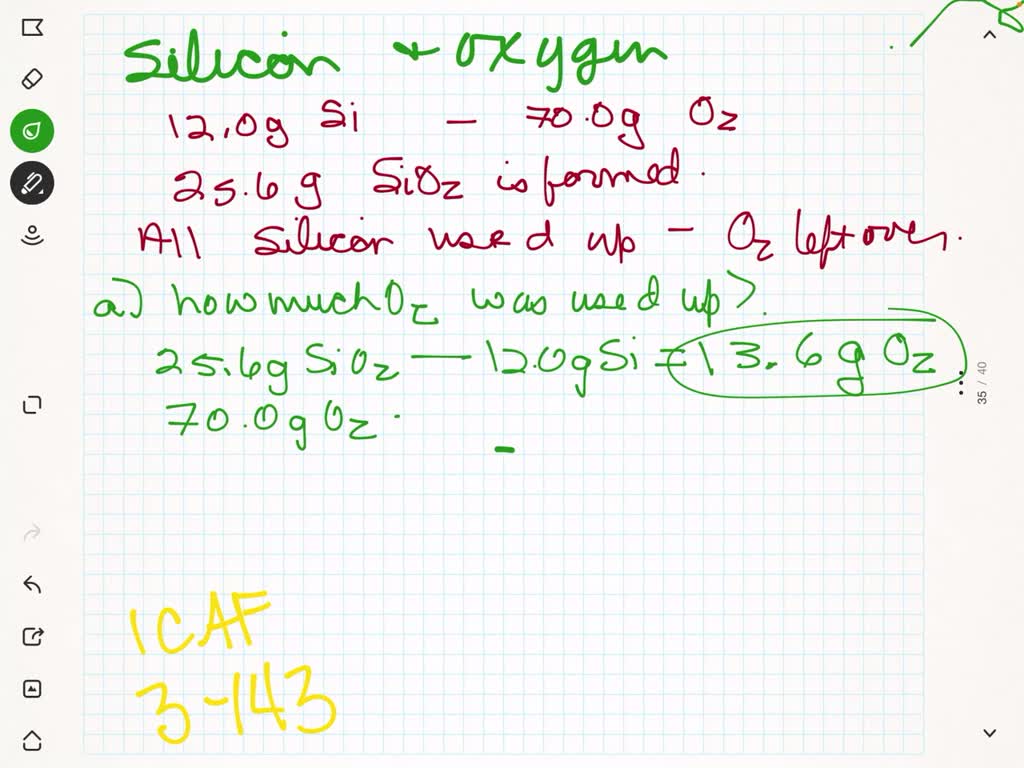 Silicon + oxygen
12.0g Si - 70.0g O2
25.6 g SiO2 is formed.
All Silicon used up - O2 left over.
a) how much O2 was used up?
25.6g SiO2 — 12.0g Si = 13.6g O2
70.0g O2 -
35 / 40
1CAF
3-143